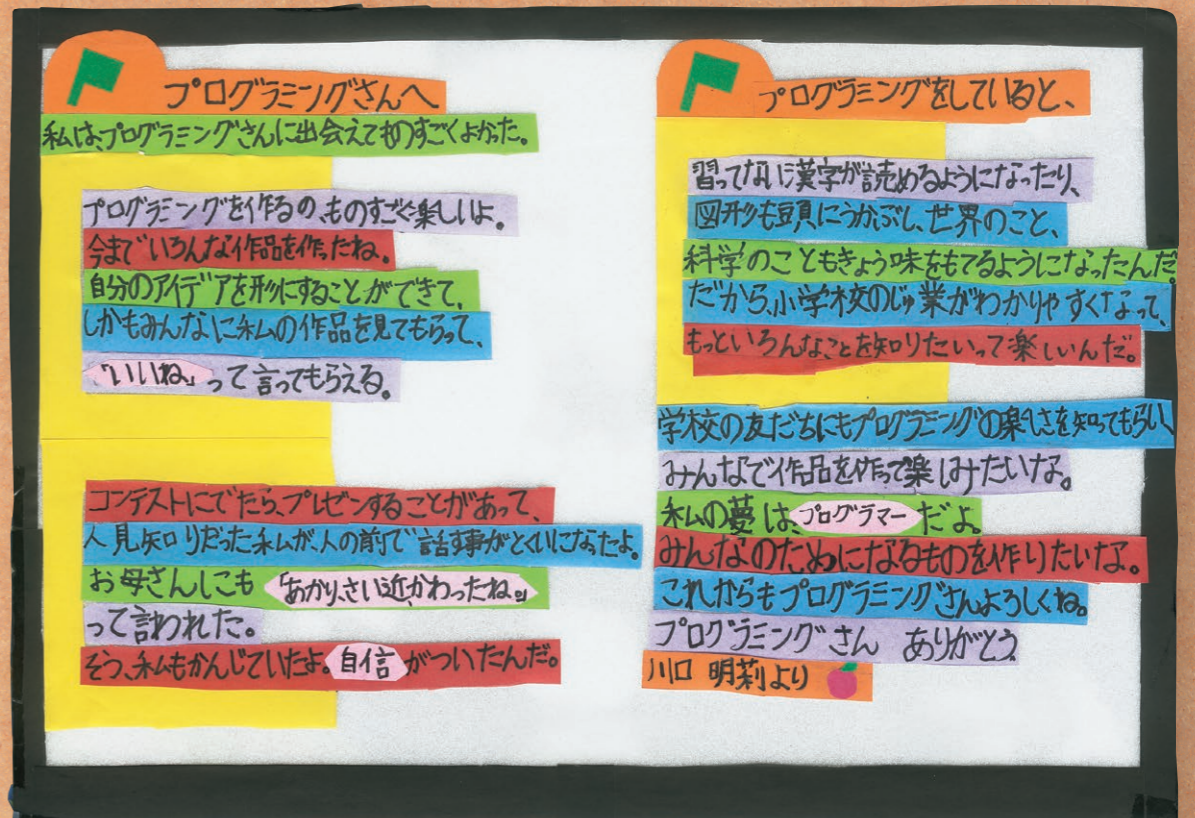 プログラミングさんへ
私は、プログラミングさんに出会えてものすごくよかった。
プログラミングを作るの、ものすごく楽しいよ。
今まで いろんな作品を作ったね。
自分のアイデアを形にすることができて、
しかもみんなに私の作品を見てもらって、
「いいね」って言ってもらえる。
コンテストにでたら、プレゼンすることがあって、
人見知りだった私が、人の前で話す事がとくいになったよ。
お母さんにも「あかり、さい近、かわったね。」
って言われた。
そう、私もかんじていたよ。自信がついたんだ。
プログラミングをしていると、
習ってない漢字が読めるようになったり、
図形も頭にうかぶし、世界のこと、
科学のこともきょう味をもてるようになったんだ。
だから、小学校のじゅ業がわかりやすくなって、
もっといろんなことを知りたいって楽しいんだ。
学校の友だちにもプログラミングの楽しさを知ってもらい、
みんなで作品を作って楽しみたいな。
私の夢は、プログラマーだよ。
みんなのためになるものを作りたいな。
これからもプログラミングさんよろしくね。
プログラミングさん ありがとう
川口 明莉より